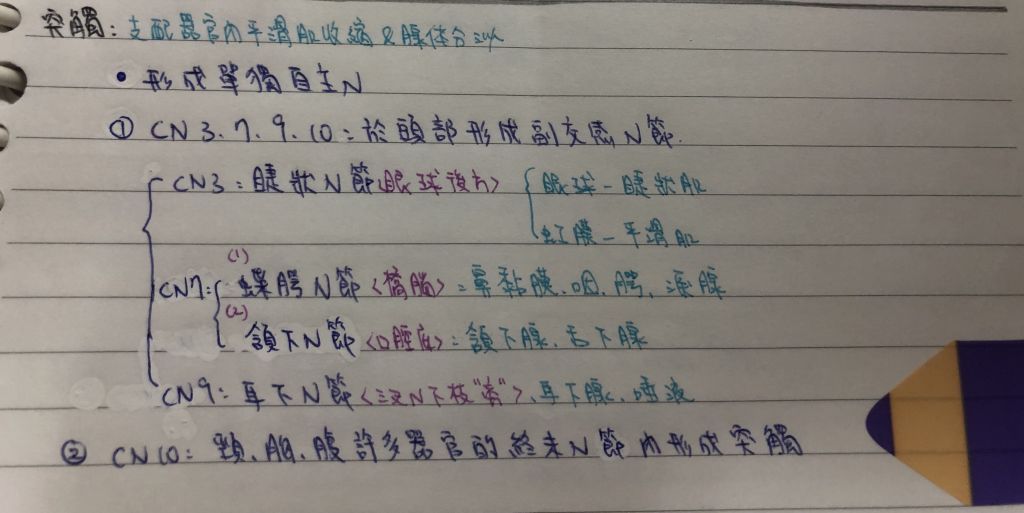 突觸：支配器官內平滑肌收縮及腺体分泌
• 形成單獨自主N
① CN 3. 7. 9. 10：於頭部形成副交感N節.
CN3：睫狀N節<眼球後方> 眼球－睫狀肌
虹膜－平滑肌
CN7： (1) 蝶腭N節<橋腦>：鼻黏膜.咽.腭.淚腺
(2) 頜下N節<口腔底>：頜下腺.舌下腺
CN9：耳下N節<三叉N下枝"旁">、耳下腺.唾液
② CN10：頸、胸、腹許多器官的終末N節內形成突觸